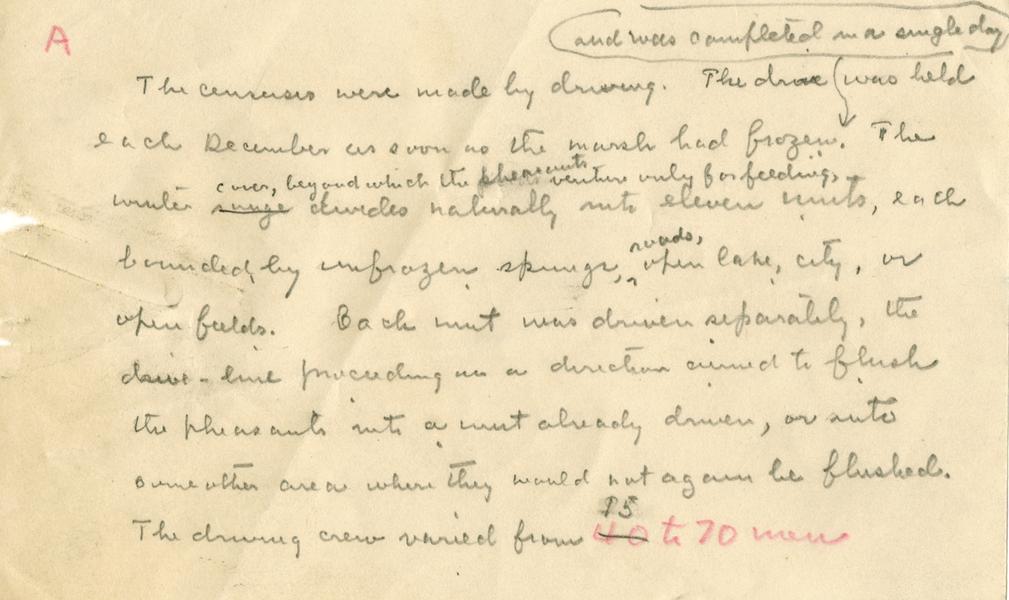 A
and was completed in a single day
The censuses were made by driving. The drive was held
each December as soon as the marsh had frozen. The
cover, beyond which the pheasants venture only for feeding,
winter range divides naturally into eleven units, each
roads,
bounded by unfrozen springs, open lake, city, or
open fields. Each unit was driven separately, the
drive-line proceeding in a direction aimed to flush
the pheasants into a unit already driven, or into
some other area where they would not again be flushed.
15
The driving crew varied from 40 to 70 men